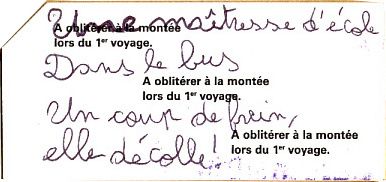 Une maîtresse d'école
A oblitérer à la montée
lors du 1er voyage.
Dans le bus
A oblitérer à la montée
lors du 1er voyage.
Un coup de frein,
A oblitérer à la montée
lors du 1er voyage.
elle décolle!